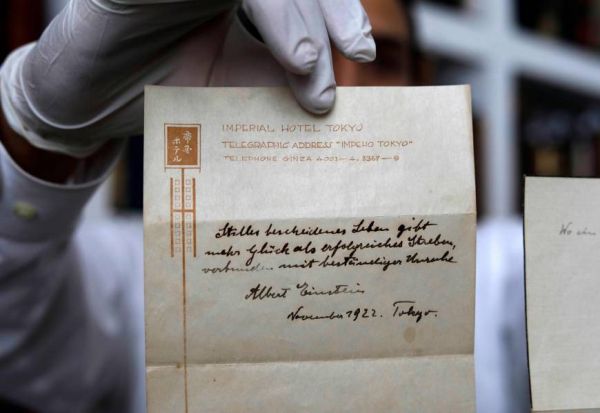 帝国
ホテル
IMPERIAL HOTEL TOKYO
TELEGRAPHIC ADDRESS "IMPEHO TOKYO"
TELEPHONE GINZA 4001—4, 3367—9
Stilles bescheidenes Leben gibt
mehr Glück als erfolgreiches Streben,
verbunden mit beständiger Unruhe.
Albert Einstein
November 1922. Tokyo.
Wo ein